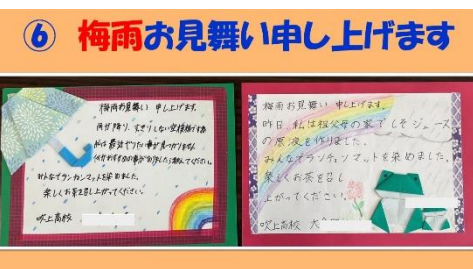 ⑥ 梅雨お見舞い申し上げます
梅雨お見舞い 申し上げます。
雨が降り、すっきりしない空模様ですね
私は最近やりたい事が見つかりません
みんなでランチョンマットを染めました。
楽しくお茶を召し上がってください。
吹上高校
梅雨お見舞い 申し上げます。
昨日、私は祖父母の家でしそジュース
の原液を作りました。
みんなでランチョンマットを染めました。
楽しくお茶を召し
上がってください。
吹上高校